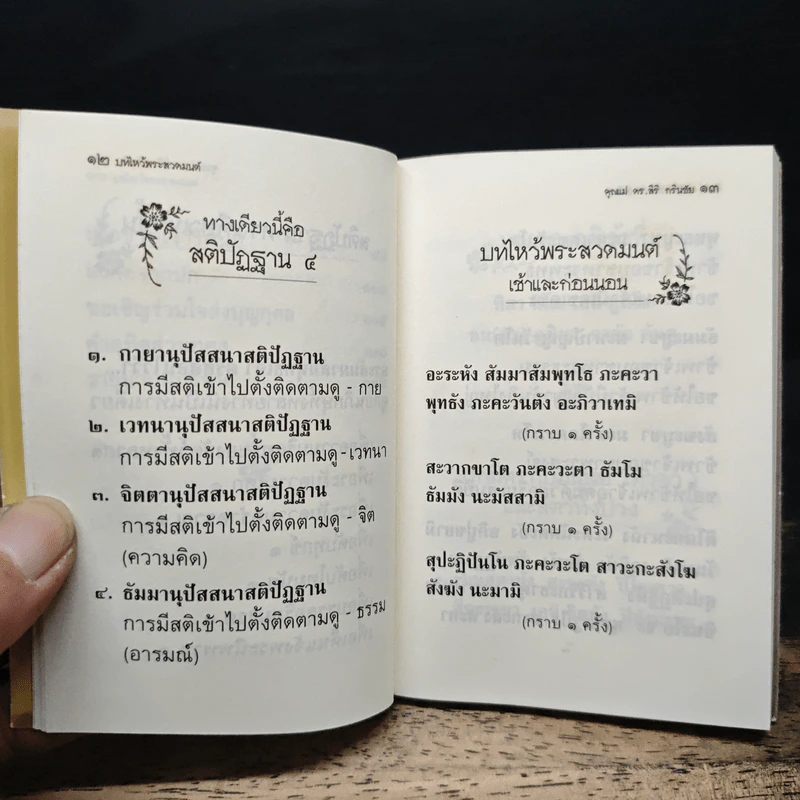 ๑๒ บทไหว้พระสวดมนต์
ทางเดียวนี้คือ
สติปัฏฐาน ๔
๑. กายานุปัสสนาสติปัฏฐาน
การมีสติเข้าไปตั้งติดตามดู - กาย
๒. เวทนานุปัสสนาสติปัฏฐาน
การมีสติเข้าไปตั้งติดตามดู - เวทนา
๓. จิตตานุปัสสนาสติปัฏฐาน
การมีสติเข้าไปตั้งติดตามดู - จิต
(ความคิด)
๔. ธัมมานุปัสสนาสติปัฏฐาน
การมีสติเข้าไปตั้งติดตามดู - ธรรม
(อารมณ์)
คุณแม่ ดร.สิริ กรินชัย ๑๓
บทไหว้พระสวดมนต์
เช้าและก่อนนอน
อะระหัง สัมมาสัมพุทโธ ภะคะวา
พุทธัง ภะคะวันตัง อะภิวาเทมิ
(กราบ ๑ ครั้ง)
สะวากขาโต ภะคะวะตา ธัมโม
ธัมมัง นะมัสสามิ
(กราบ ๑ ครั้ง)
สุปะฏิปันโน ภะคะวะโต สาวะกะสังโฆ
สังฆัง นะมามิ
(กราบ ๑ ครั้ง)